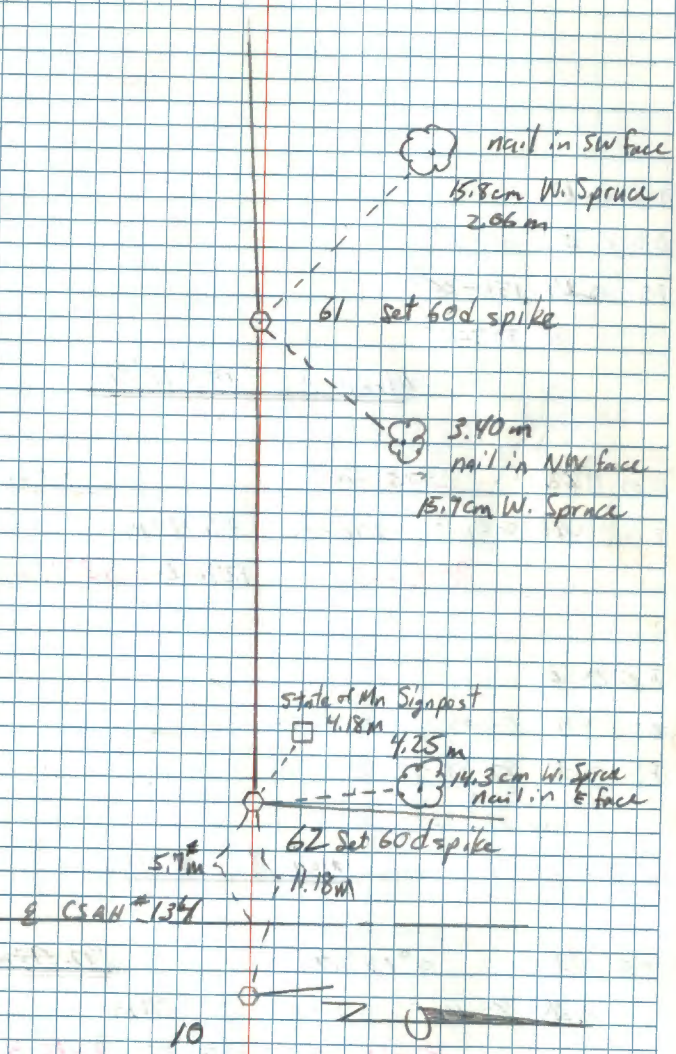 nail in SW face
15.8cm W. Spruce
2.06 m
61 set 60d spike
3.40 m
nail in NW face
15.7cm W. Spruce
State of Mn Signpost
4.18m
4.25 m
14.3cm W. Spruce
nail in E face
62 Set 60d spike
11.18m
℄ CSAH #134
N
10